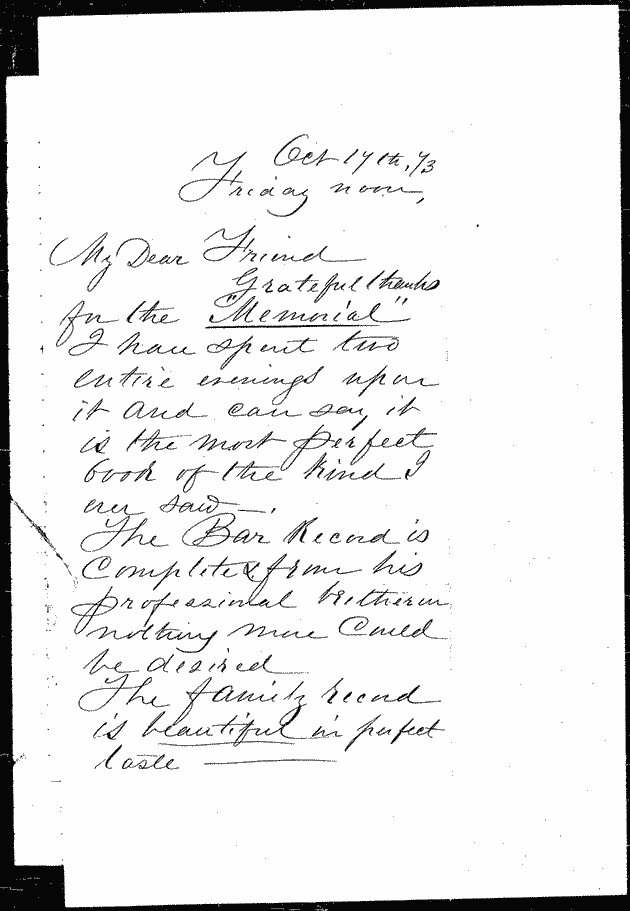 Oct 17th, 73
Friday noon,
My Dear Friend
Grateful thanks
for the "Memorial"
I have spent two
entire evenings upon
it and can say it
is the most perfect
book of the kind I
ever saw —.
The Bar Record is
Complete & from his
professional bretheren
nothing more Could
be desired
The family record
is beautiful in perfect
taste —